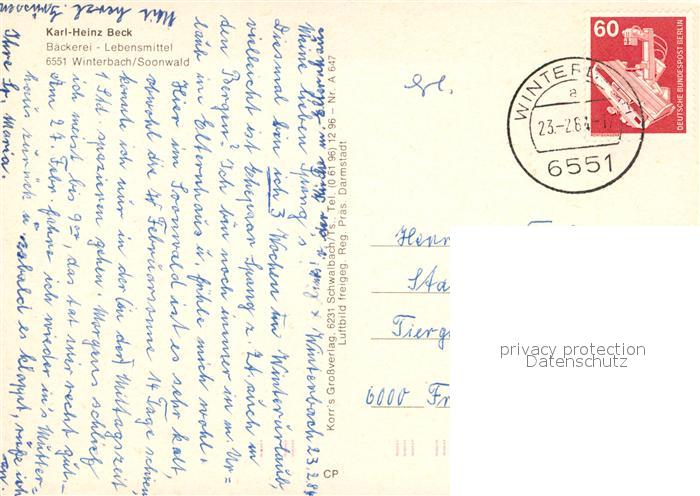 Karl-Heinz Beck
Bäckerei - Lebensmittel
6551 Winterbach/Soonwald
Winterbach 23.2.84
Meine lieben Spang's!
Diesmal bin ich 3 Wochen im Winterurlaub,
vielleicht ist Ehepaar Spang z. Zt. auch in
den Bergen? Ich bin noch immer in m. Ur=
laub im Elternhaus u. fühle mich wohl.
Hier im Soonwald ist es sehr kalt
obwohl die Februarsonne 14 Tage schien,
konnte ich nur in der Mittagszeit
1 Std. spazieren gehen. Morgens schlief
ich meist bis 9 00 das tat mir recht gut.
Am 27. Febr. fahre ich wieder in's Mütter=
haus zurück u. sobald es klappt, rufe ich
an.
Mit herzl. Grüssen
Ihre Sr. Maria.
Korr's Großverlag, 6231 Schwalbach/Ts., Tel. (0 61 96) 12 96 – Nr. A 647
Luftbild freigeg. Reg. Präs. Darmstadt
CP
60
DEUTSCHE BUNDESPOST BERLIN
a
23.-2.84
6551
Herr
Sta
Tierg
6000 Fr
privacy protection
Datenschutz